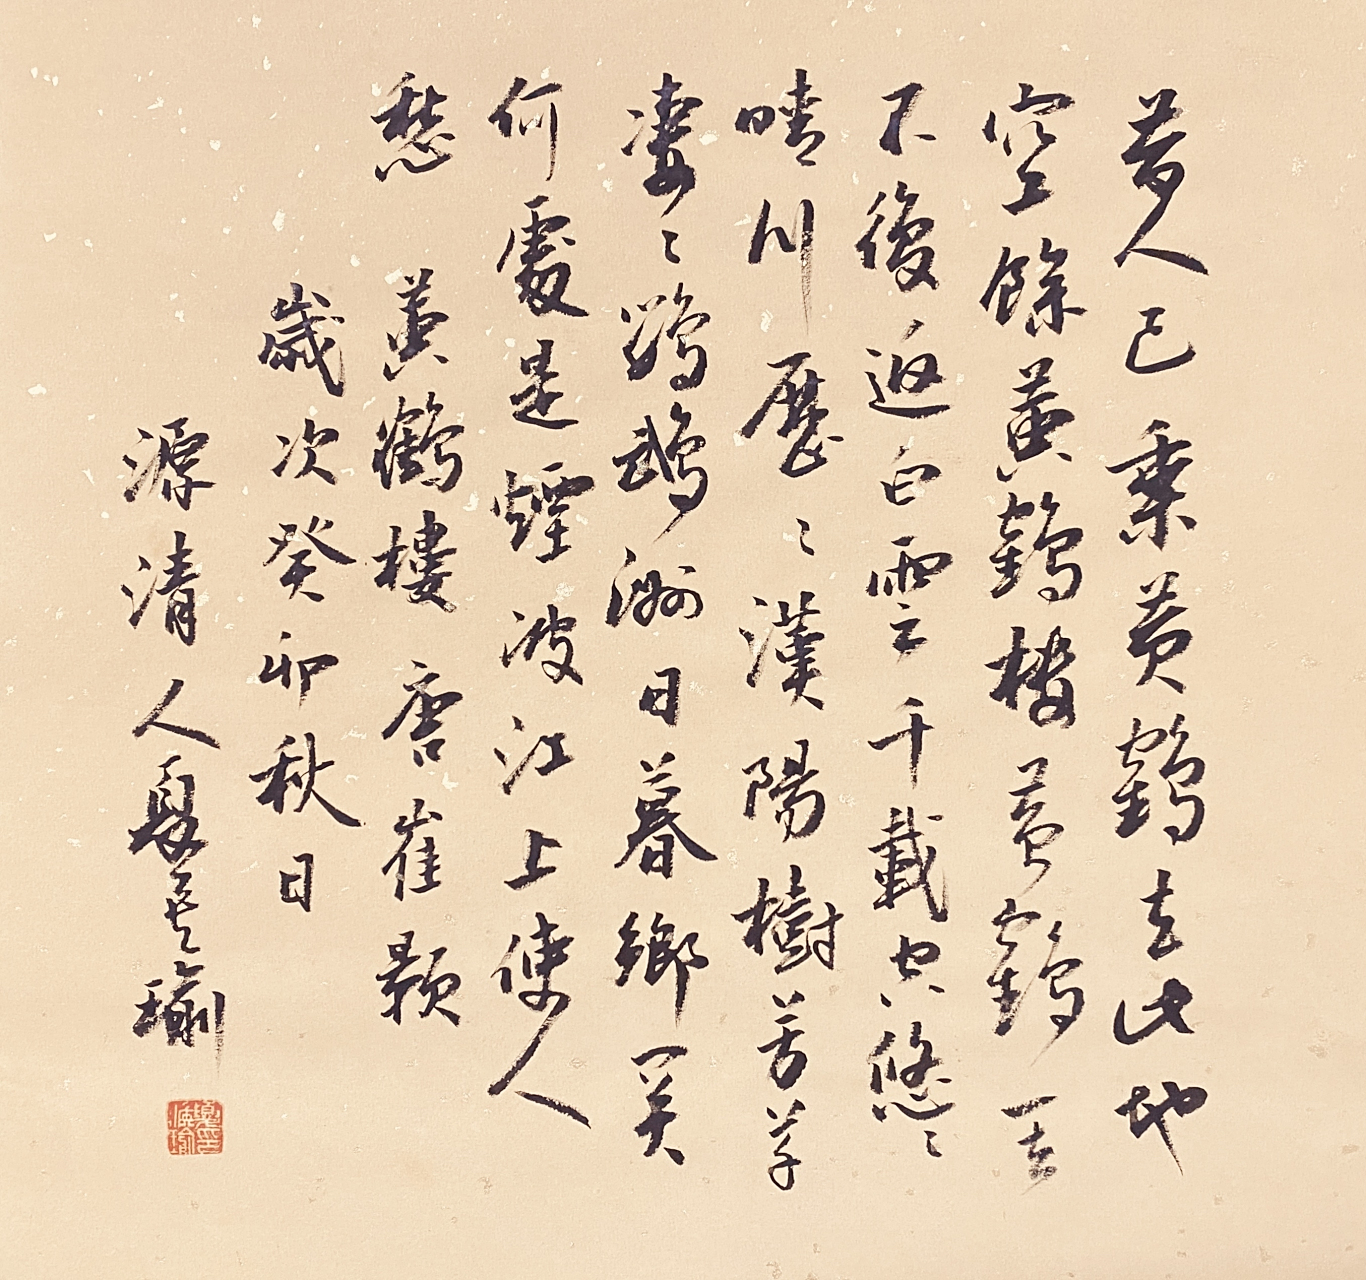 昔人已乘黄鶴去此地
空餘黄鶴樓黄鶴一去
不復返白雲千載空悠〻
晴川歷〻漢陽樹芳草
凄〻鸚鵡洲日暮鄉關
何處是煙波江上使人
愁 黄鶴樓 唐崔顥
歲次癸卯秋日
源清人夏 瑜